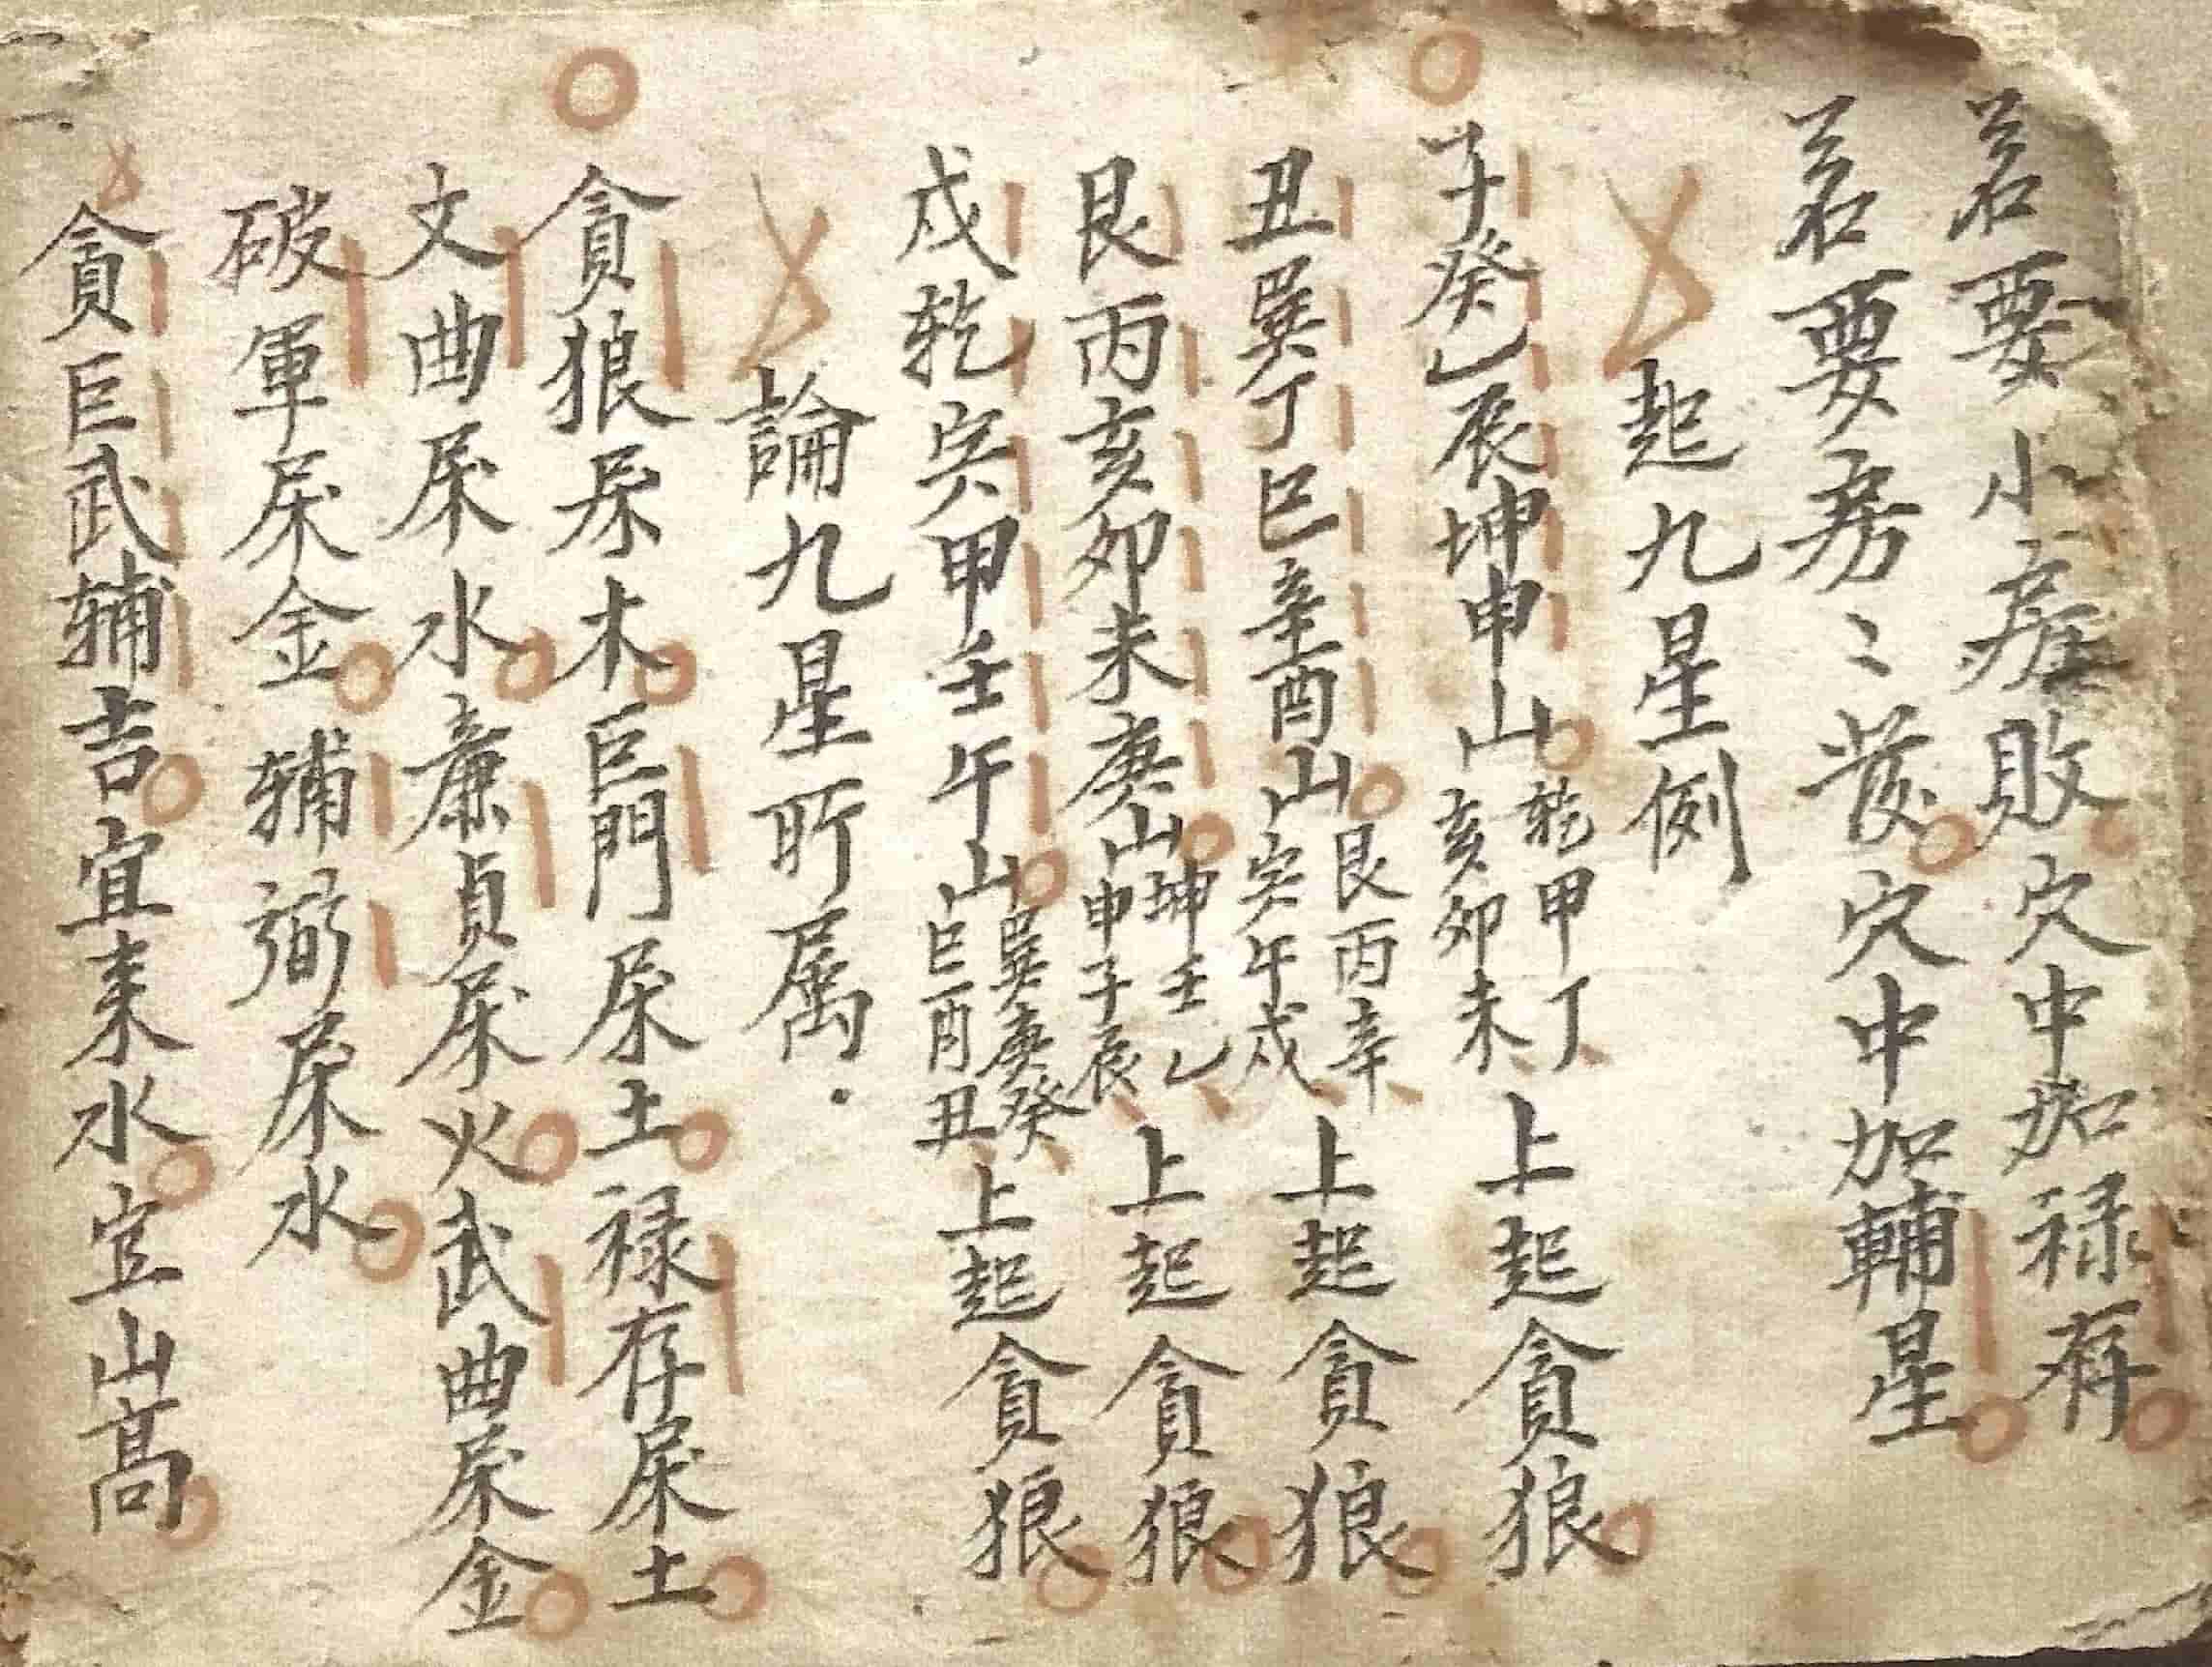 若要小房敗穴中加祿存
若要房〻發穴中加輔星
起九星例
子癸乙辰坤申山乾甲丁亥卯未上起貪狼
丑巽丁巳辛酉山艮丙辛寅午戌上起貪狼
艮丙亥卯未庚山坤壬乙申子辰上起貪狼
戌乾寅甲壬午山巽庚癸巳酉丑上起貪狼
論九星所属
貪狼屬木巨門屬土禄存屬土
文曲屬水廉貞屬火武曲屬金
破軍屬金辅弼屬水
貪巨武辅吉宜来水宜山高